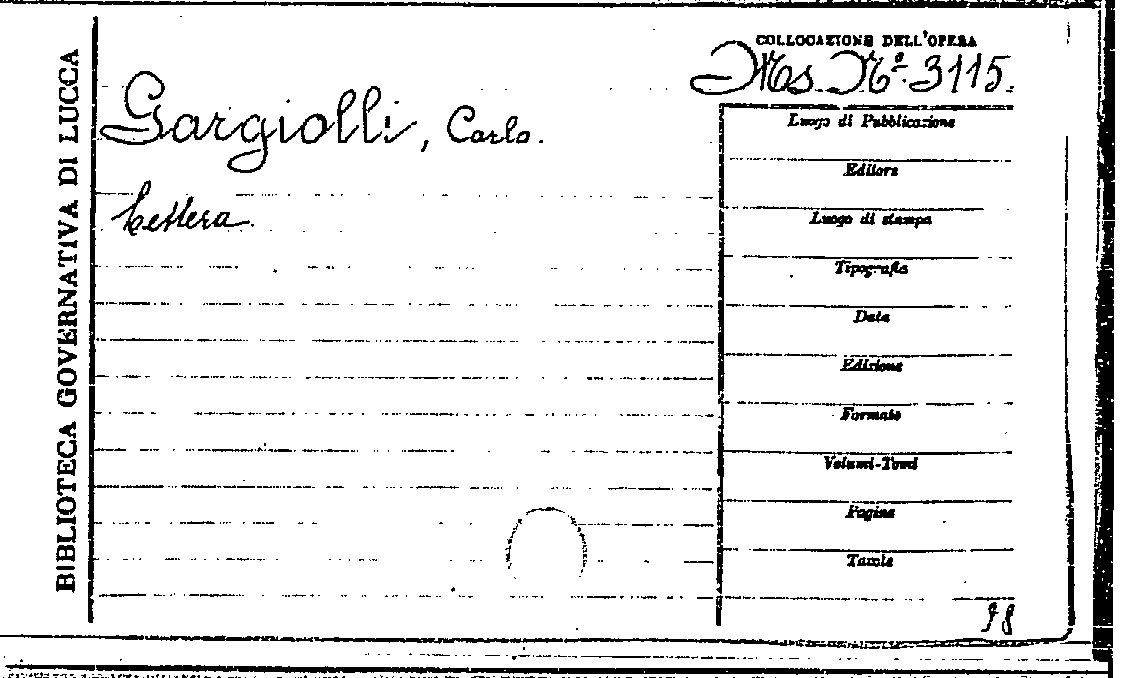 BIBLIOTECA GOVERNATIVA DI LUCCA
COLLOCAZIONE DELL'OPERA
Ms. Nº. 3115.
Gargiolli, Carlo.
Lettera.
Luogo di Pubblicazione
Editore
Luogo di stampa
Tipografia
Data
Edizione
Formato
Volumi-Tomi
Pagine
Tavole
98